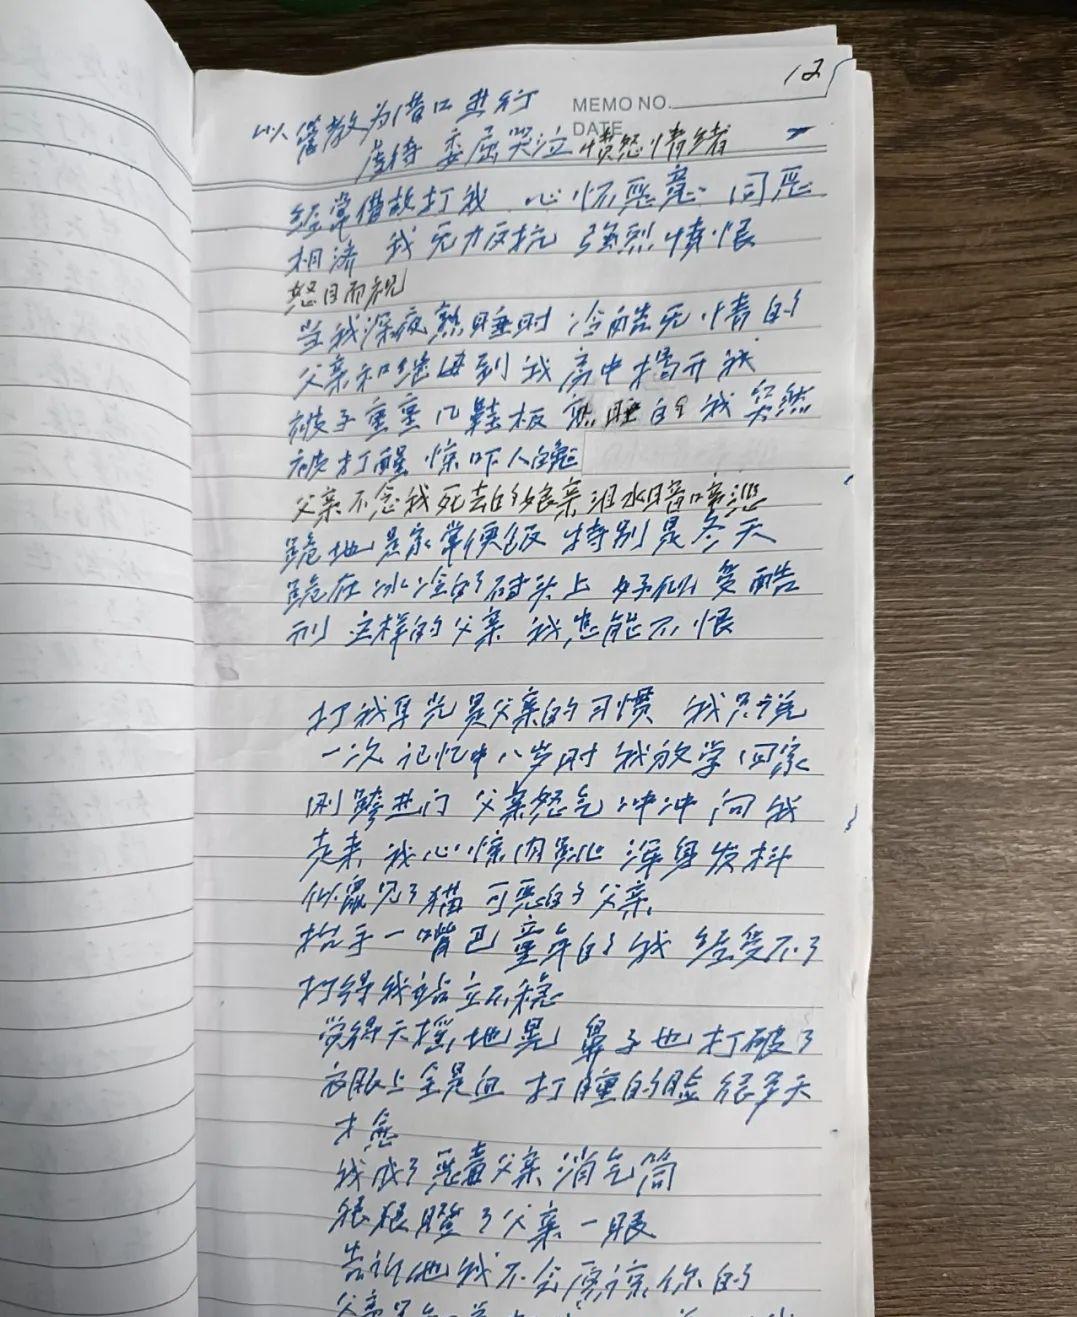 12
MEMO NO.
DATE
以管教为借口进行
虐待 委屈哭泣 愤怒情绪
经常借故打我 心怀恶意 同恶
相济 我无力反抗 强烈愤恨
怒目而视
当我深夜熟睡时 冷酷无情的
父亲和继母到我高中揭开我
被子重重几鞋板 熟睡的我突然
被打醒 惊吓人魂
父亲不念我死去的娘亲 泪水暗暗流
跪地是家常便饭 特别是冬天
跪在冰冷的砖头上 好似受酷
刑 这样的父亲 我怎能不恨
打我耳光是父亲的习惯 我只说
一次 记忆中八岁时 我放学回家
刚跨进门 父亲怒气冲冲向我
走来 我心惊肉跳 浑身发抖
似鼠见了猫 可恶的父亲
抬手一嘴巴 童年的我 经受不了
打得我站立不稳
觉得天摇地晃 鼻子也打破了
衣服上全是血 打肿的脸很多天
才愈
我成了恶毒父亲消气筒
狠狠瞪了父亲一眼
告诉他我不会原谅你的